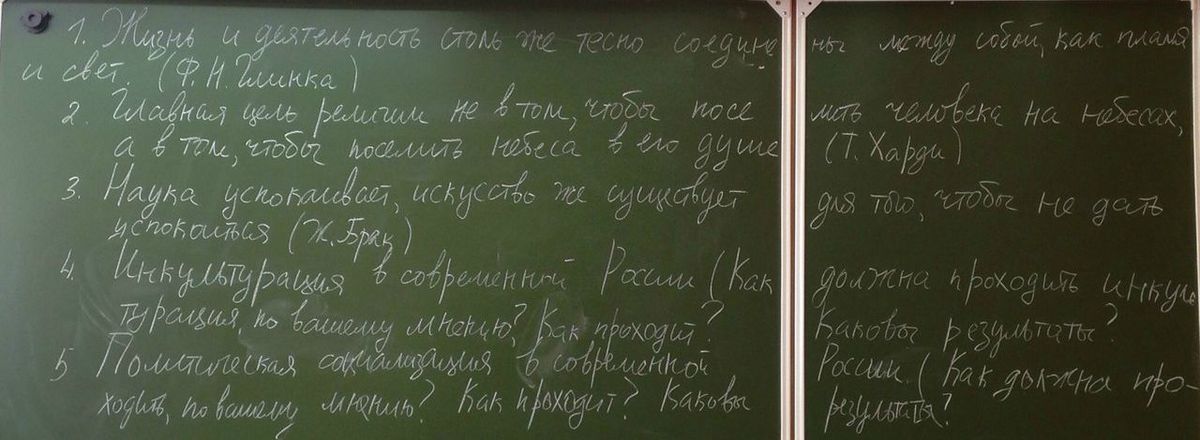 1. Жизнь и деятельность столь же тесно соединены между собой, как пламя
и свет. (Ф.Н. Глинка)
2. Главная цель религии не в том, чтобы поселить человека на небесах,
а в том, чтобы поселить небеса в его душе (Т. Харди)
3. Наука успокаивает, искусство же существует для того, чтобы не дать
успокоиться (Ж. Брак)
4. Инкультурация в современной России (Как должна проходить инкуль
турация, по вашему мнению? Как проходит? Каковы результаты?
5 Политическая социализация в современной России. (Как должна про-
ходить, по вашему мнению? Как проходит? Каковы результаты?